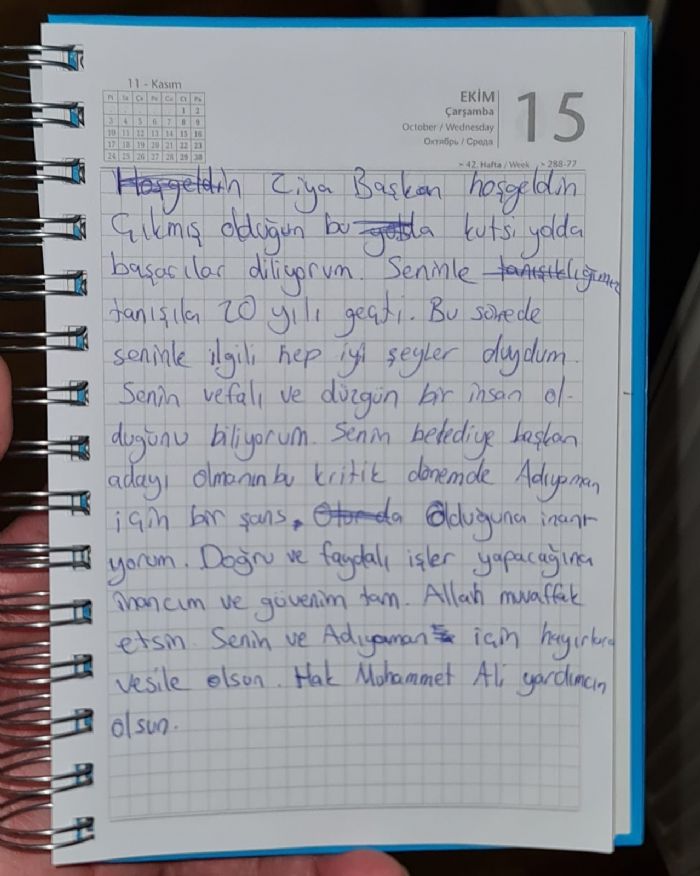 11 - Kasım
Pt Sa Ça Pe Cu Ct Pa
1 2
3 4 5 6 7 8 9
10 11 12 13 14 15 16
17 18 19 20 21 22 23
24 25 26 27 28 29 30
EKİM
Çarşamba
October / Wednesday
Октябрь / Среда
15
42. Hafta / Week 288-77
Hoşgeldin Ziya Başkan hoşgeldin
Çıkmış olduğun bu yolda kutsi yolda
başarılar diliyorum. Seninle tanışıklığımız
tanışıla 20 yılı geçti. Bu sürede
seninle ilgili hep iyi şeyler duydum.
Senin vefalı ve düzgün bir insan ol-
duğunu biliyorum. Senin belediye başkan
adayı olmanın bu kritik dönemde Adıyaman
için bir şans. Olduğuna inanı-
yorum. Doğru ve faydalı işler yapacağına
inancım ve güvenim tam. Allah muvaffak
etsin. Senin ve Adıyaman için hayırlara
vesile olsun. Hak Muhammet Ali yardımcın
olsun.